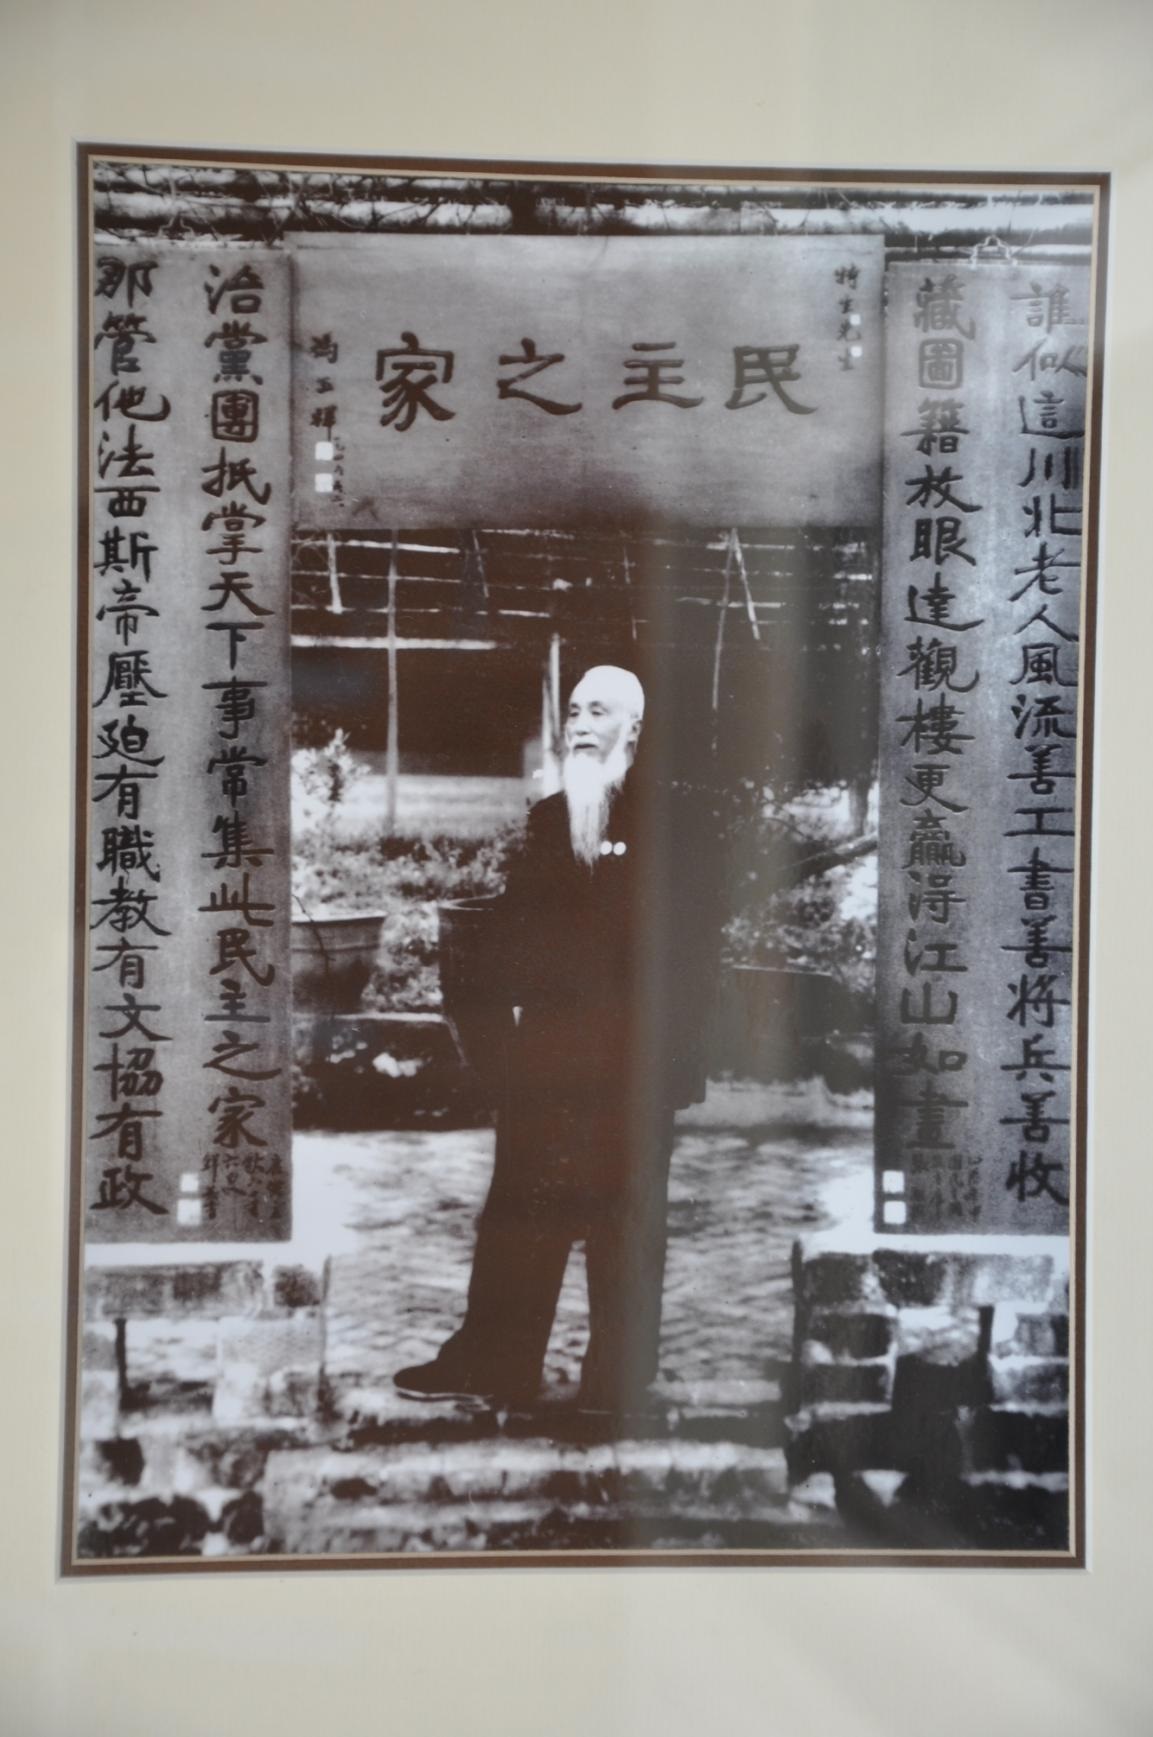 民主之家
特生先生
馮玉祥
誰似這川北老人風流善工書善將兵善收
藏圖籍放眼達觀樓更贏得江山如畫
那管他法西斯帝壓迫有職教有文協有政
治黨團抵掌天下事常集此民主之家